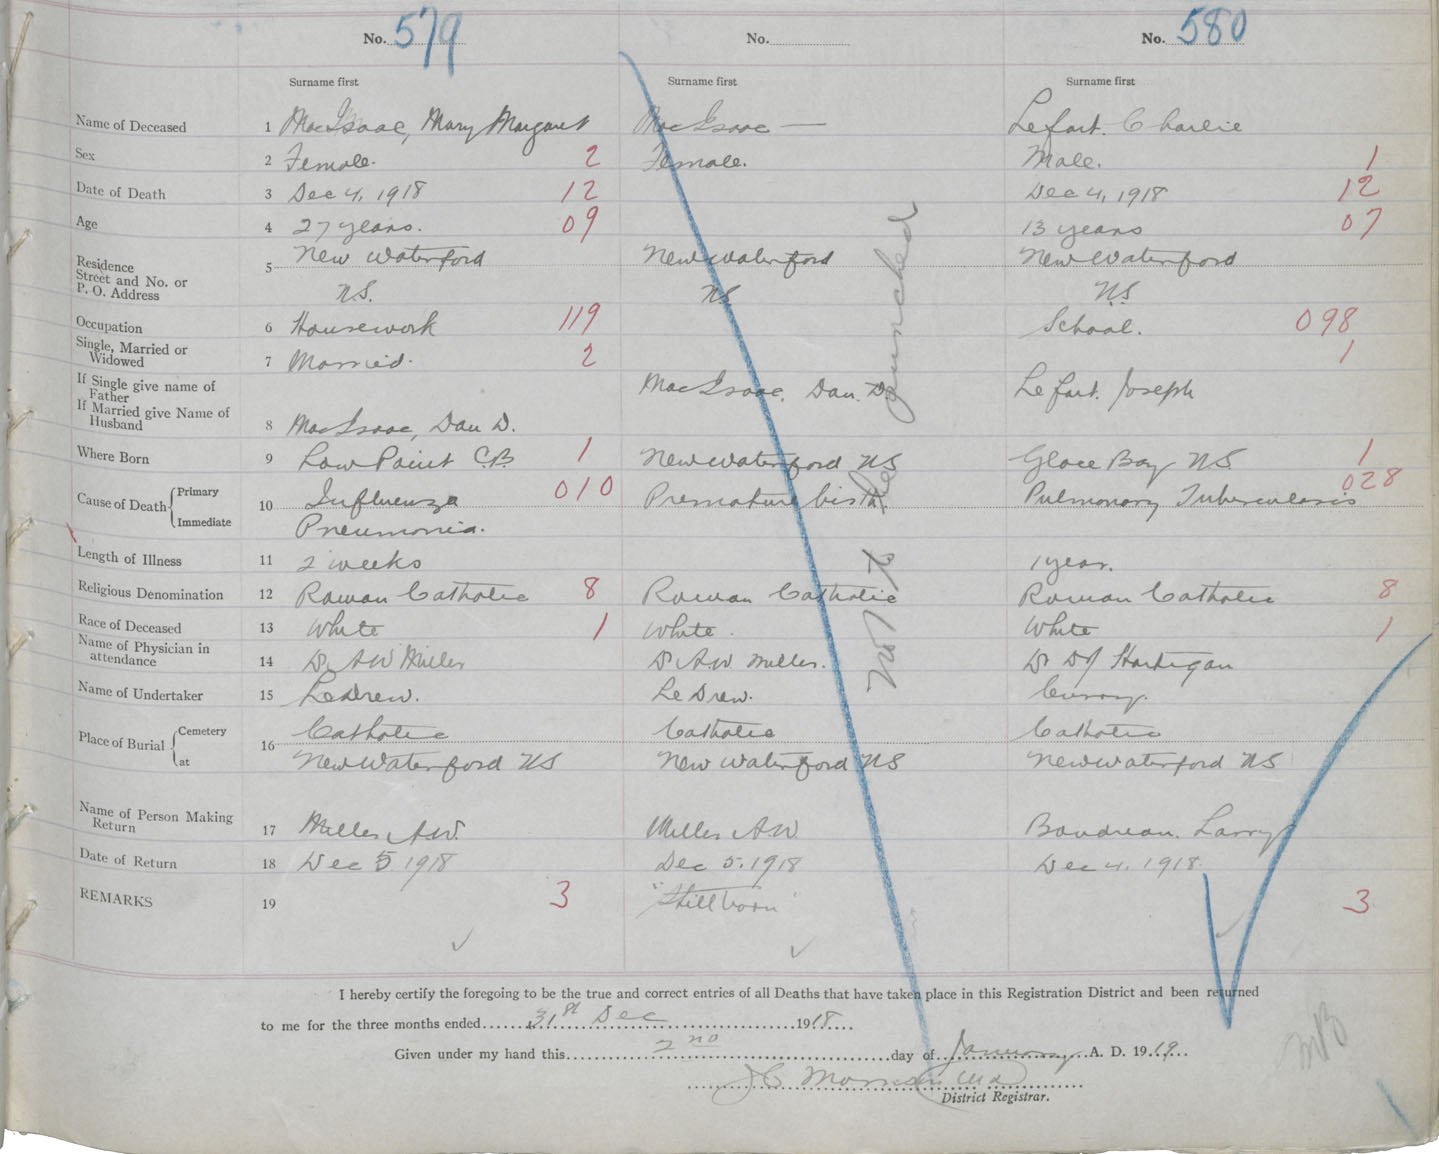 No. 579 No. No. 580
Surname first Surname first Surname first
Name of Deceased 1 MacIsaac, Mary Margaret MacIsaac — Lefort. Charlie
Sex 2 Female. 2 Female. Male. 1
Date of Death 3 Dec 4, 1918 12 Dec 4, 1918 12
Age 4 27 years. 09 13 years 07
Residence
Street and No. or
P. O. Address
5 New Waterford New Waterford New Waterford
N.S. NS N.S
Occupation 6 Housework 119 School. 098
Single, Married or
Widowed
7 Married. 2 1
If Single give name of
Father
MacIsaac, Dan. D. Lefort. Joseph
If Married give Name of
Husband
8 MacIsaac, Dan D.
Where Born 9 Low Point C.B. 1 New Waterford NS Glace Bay NS 1
Cause of Death Primary 10 Influenza 010 Premature birth Pulmonary Tuberculosis 028
Immediate Pneumonia.
Length of Illness 11 2 weeks 1 year.
Religious Denomination 12 Roman Catholic 8 Roman Catholic Roman Catholic 8
Race of Deceased 13 White 1 White. White 1
Name of Physician in
attendance
14 Dr AW Miller Dr A.W. Miller. Dr DJ Hartigan
Name of Undertaker 15 LeDrew. LeDrew. Curry.
Place of Burial Cemetery 16 Catholic Catholic Catholic
at New Waterford NS New Waterford NS New Waterford NS
Name of Person Making
Return
17 Miller A.W. Miller AW Boudreau. Larry
Date of Return 18 Dec 5 1918 Dec 5, 1918 Dec 4, 1918.
REMARKS 19 3 "Stillborn" 3
Not to be punched
I hereby certify the foregoing to be the true and correct entries of all Deaths that have taken place in this Registration District and been returned
to me for the three months ended 31st Dec 1918
Given under my hand this 2nd day of January A. D. 1919
MB
District Registrar.